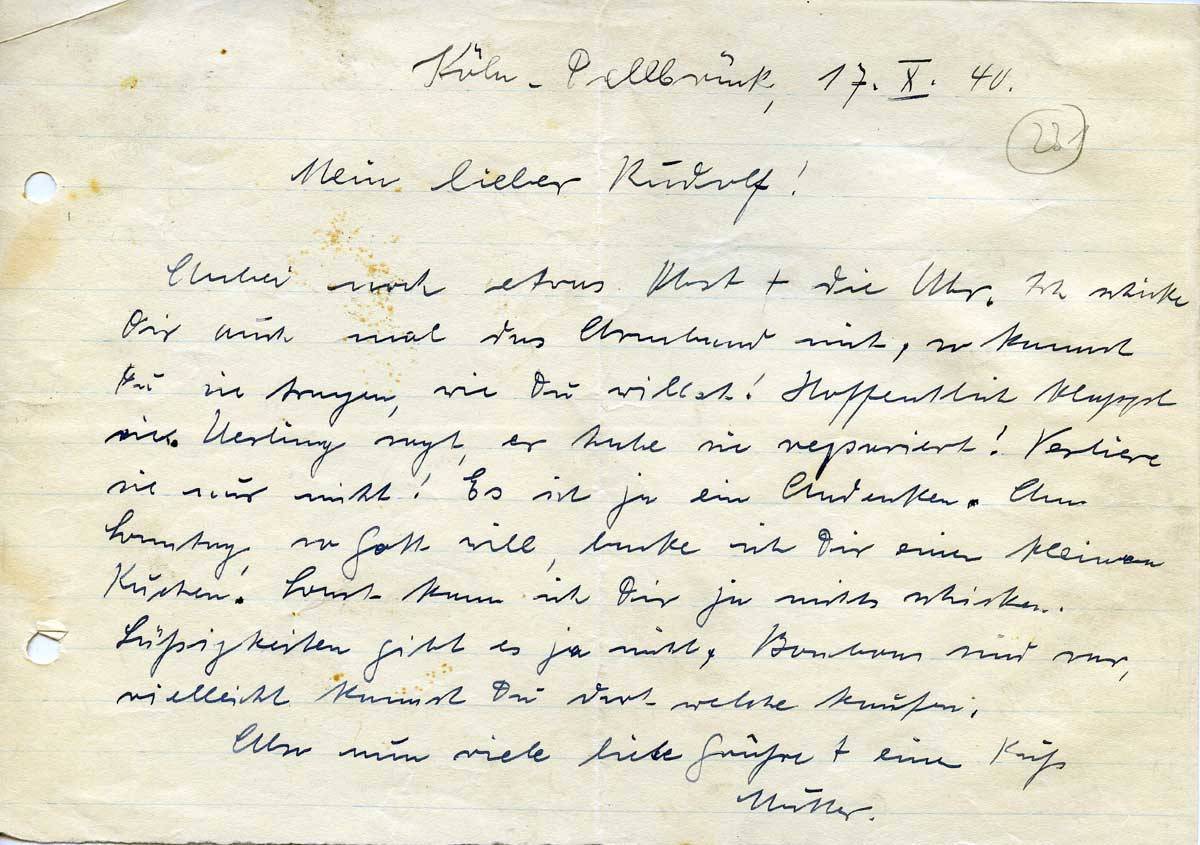 Köln-Dellbrück, 17. X. 40.
221
Mein lieber Rudolf!
Anbei noch etwas Obst + die Uhr. Ich schicke
Dir auch mal das Armband mit, so kannst
Du sie tragen, wie Du willst! Hoffentlich klappt
sie. sagt, er habe sie repariert! Verliere
sie nur nicht! Es ist ja ein Andenken. Am
Sonntag, so Gott will, backe ich Dir einen kleinen
Kuchen! Sonst kann ich Dir ja nichts schicken.
Süßigkeiten gibt es ja nicht, Bonbons sind rar,
vielleicht kannst Du dort welche kaufen.
Aber nun viele liebe Grüße + einen Kuß
Mutter.